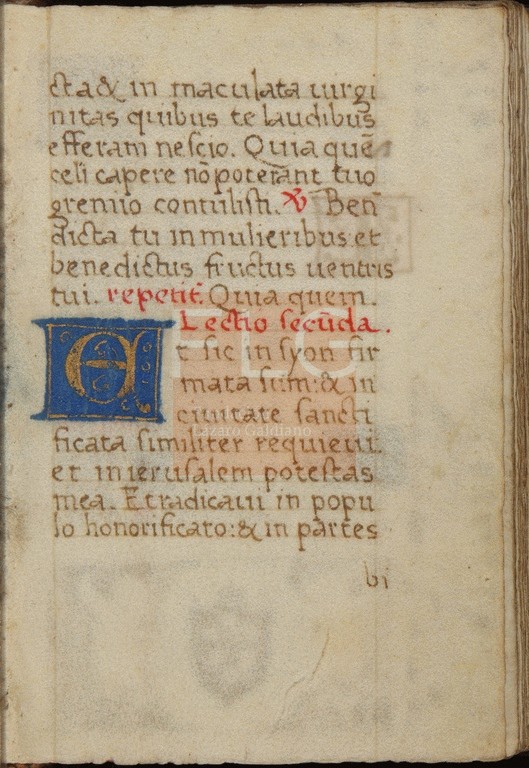 cta & in maculata uirgi
nitas quibus te laudibus
efferam nescio. Quia quē
celi capere nō poterant tuo
gremio contulisti. ℣ Ben̄
dicta tu in mulieribus: et
benedictus fructus uentris
tui. repetit̄. Quia quem.
Lectio secūda.
Et sic in syon fir
mata sum: & in
ciuitate sancti
ficata similiter requieui.
et in ierusalem potestas
mea. Et radicaui in popu
lo honorificato: & in partes
bi
FLG
Lázaro Galdiano